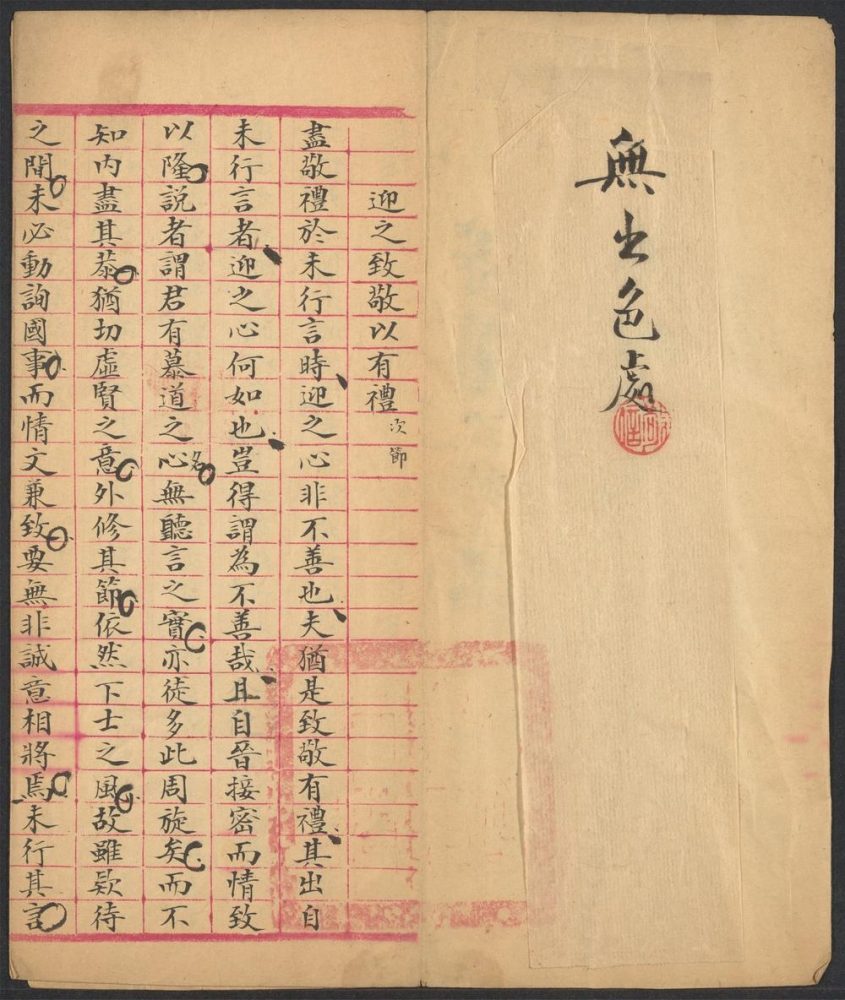 無出色處
迎之致敬以有禮次節
盡敬禮於未行言時迎之心非不善也夫猶是致敬有禮其出自
未行言者迎之心何如也豈得謂為不善哉且自晉接密而情致
以隆說者謂君有慕道之心名無聽言之實亦徒多此周旋矣而不
知內盡其恭猶切虛賢之意外修其節依然下士之風故雖欵待
之間未必動詢國事而情文兼致要無非誠意相將焉未行其言